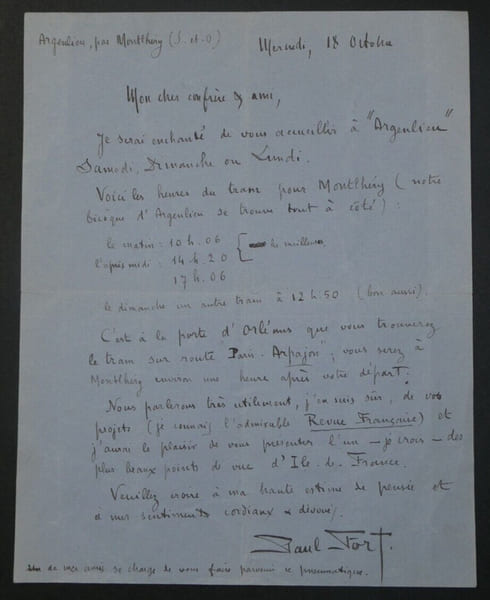 Argenlieu, par Montlhéry (S.-et-O.)
Mercredi, 18 Octobre
Mon cher confrère & ami,
Je serai enchanté de vous accueillir à "Argenlieu"
Samedi, Dimanche ou Lundi.
Voici les heures du tram pour Montlhéry (notre
bicoque d'Argenlieu se trouve tout à côté) :
le matin : 10 h. 06
l'après midi : 14 h. 20 { les meilleurs
17 h. 06
le dimanche un autre tram à 12 h. 50 (bon aussi).
C'est à la porte d'Orléans que vous trouverez
le tram sur route "Paris-Arpajon"; vous serez à
Montlhéry environ une heure après votre départ.
Nous parlerons très utilement, j'en suis sûr, de vos
projets (je connais l'admirable Revue Française) et
j'aurai le plaisir de vous présenter l'un – je crois – des
plus beaux points de vue d'Ile-de-France.
Veuillez croire à ma haute estime de pensée et
à mes sentiments cordiaux & dévoués.
Paul Fort.
de mes amis se charge de vous faire parvenir ce pneumatique.